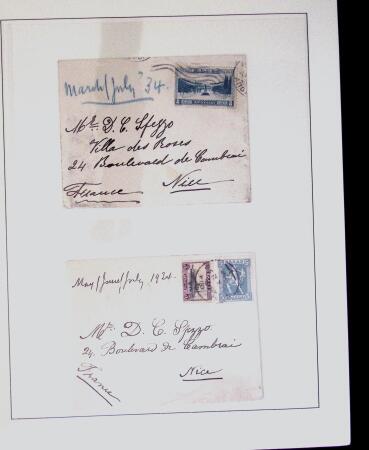 March/July '34.
Mr. D. C. Spezzo
Villa des Roses
24 Boulevard de Cambrai
Nice
France
May/June/July 1934.
Mr. D. C. Spezzo.
24, Boulevard de Cambrai
Nice
France